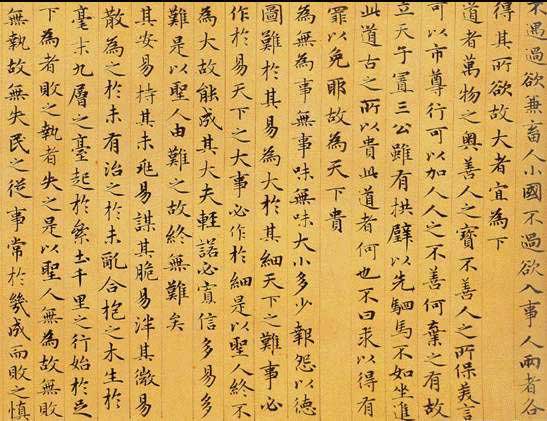 不遇過欲兼畜人小國不過欲入事人兩者各
得其所欲故大者宜為下
道者萬物之奥善人之寶不善人之所保美言
可以市尊行可以加人人之不善何棄之有故
立天子置三公雖有拱璧以先駟馬不如坐進
此道古之所以貴此道者何也不曰求以得有
罪以免耶故為天下貴
為無為事無事味無味大小多少報怨以德
圖難於其易為大於其細天下之難事必
作於易天下之大事必作於細是以聖人終不
為大故能成其大夫輕諾必寡信多易多
難是以聖人由難之故終無難矣
其安易持其未兆易謀其脆易泮其微易
散為之於未有治之於未亂合抱之木生於
毫末九層之臺起於累土千里之行始於足
下為者敗之執者失之是以聖人無為故無敗
無執故無失民之從事常於幾成而敗之慎